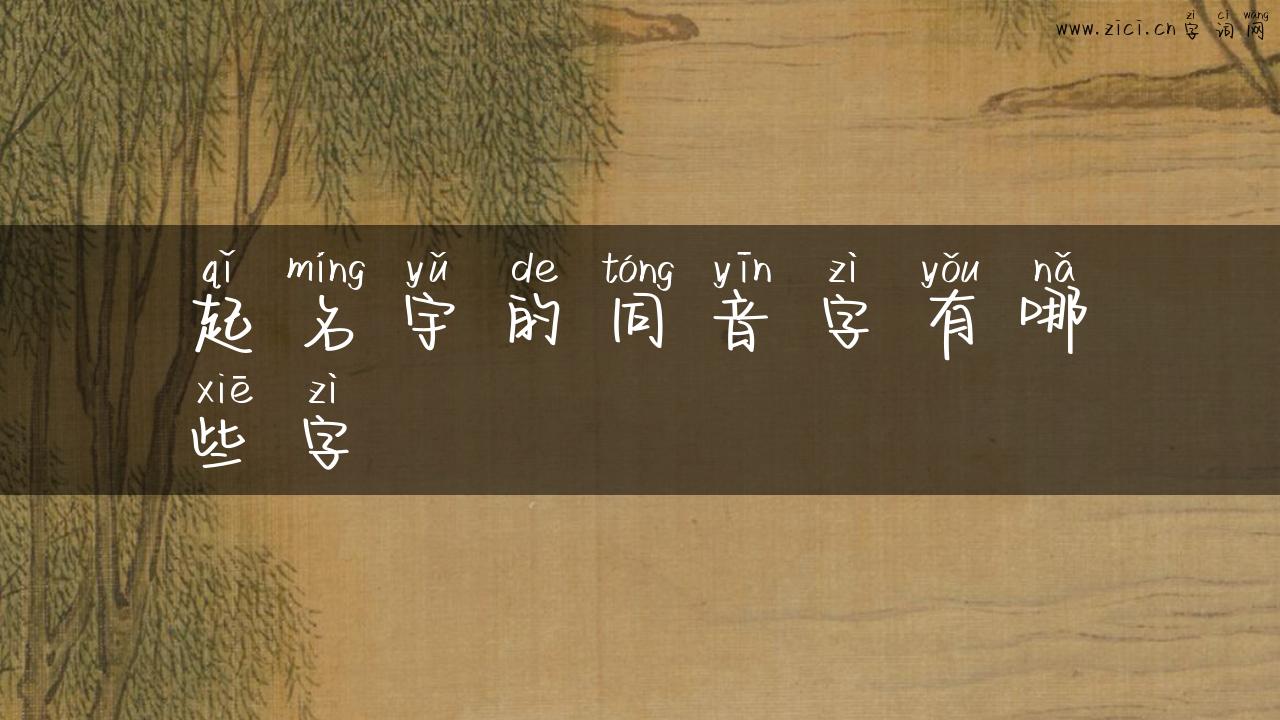 zì cí wǎng
www.zici.cn 字 词 网
qǐ míng yǔ de tóng yīn zì yǒu nǎ
起 名 宇 的 同 音 字 有 哪
xiē zì
些 字